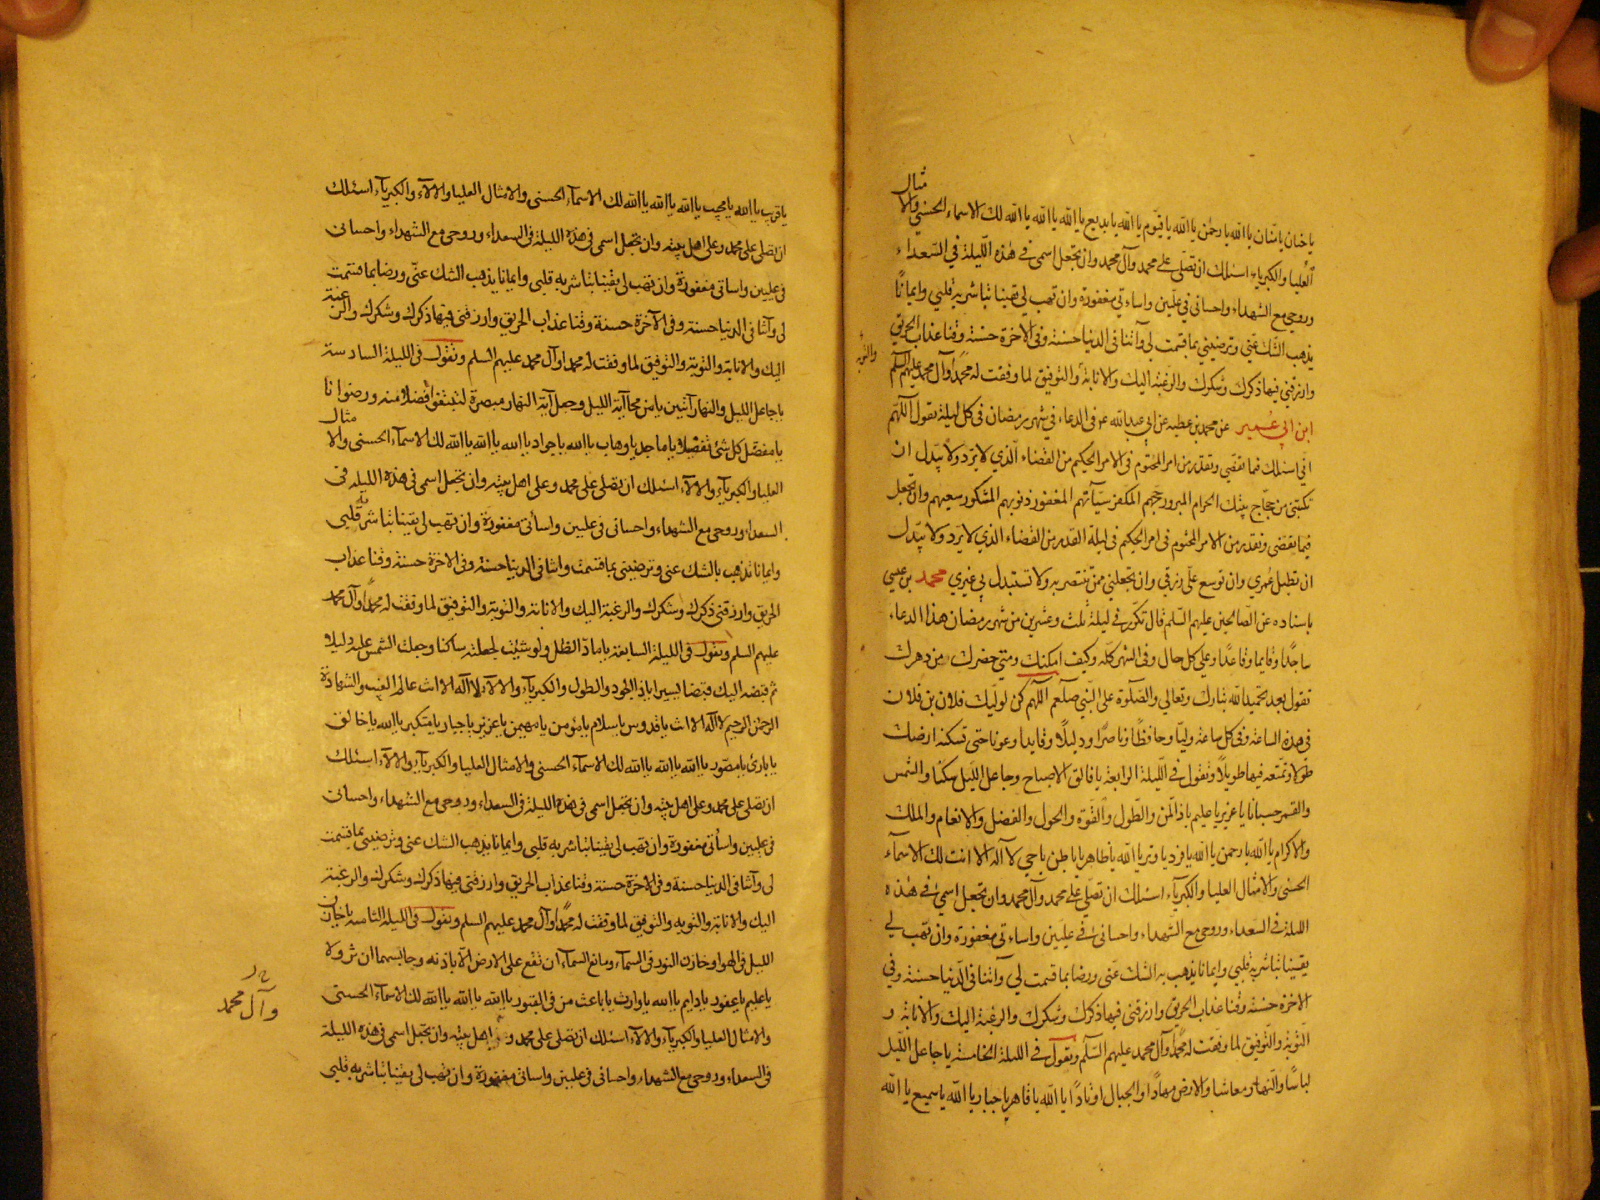 يا حنان يا منان يا الله يا رحمن يا الله يا قيوم يا الله يا بديع يا الله يا الله يا الله لك الاسماء الحسنى والا
مثال
العليا والكبرياء اسئلك ان تصلى على محمد وآل محمد وان تجعل اسمى في هذه الليلة في السعداء
وروحى مع الشهداء واحسانى في عليين واساءتي مغفورة وان تهب لي يقينا تباشر به قلبي وايمانًا
يذهب الشك عني وترضيني بما قسمت لي وآتنا في الدنيا حسنة وفى الاخرة حسنة وقنا عذاب الحريق
وارزقني فيها ذكرك وشكرك والرغبة اليك والانابة والتوفيق لما وفقت له محمدًا وآل محمد عليهم السلم
والتوبة
ابن ابي عمير عن محمد بن عطية عن ابي عبد الله ع في الدعاء في شهر رمضان في كل ليلة تقول اللهم
اني اسئلك فيما تقضى وتقدر من الامر المحتوم فى الامر الحكيم من القضاء الذي لا يرد ولا يبدل ان
تكتبنى من حجاج بيتك الحرام المبرور حجهم المكفر سيأتهم المغفور ذنوبهم المشكور سعيهم وان تجعل
فيما تقضى وتقدر من الامر المحتوم فى امر الحكيم فى ليلة القدر من القضاء الذي لا يرد ولا يبدل
ان تطيل عمري وان توسع على رزقي وان تجعلني ممن تنتصر به ولا تستبدل بي غيري محمد بن عيسى
باسناده عن الصالحين عليهم السلم قال تكرر في ليلة ثلث وعشرين من شهر رمضان هذا الدعاء
ساجدًا وقايما وقاعدًا وعلى كل حال وفى الشهر كله وكيف امكنك ومتى حضرك من دهرك
تقول بعد تحميد الله تبارك وتعالى والصلوة على النبي صلعم اللهم كن لوليك فلان بن فلان
في هذه الساعة وفى كل ساعة وليا وحافظًا وناصرًا ودليلًا وقايدا وعونا حتى تسكنه ارضك
طوعا وتمتعه فيها طويلًا وتقول في الليلة الرابعة يا فالق الاصباح وجاعل الليل سكنا والشمس
والقمر حسبانا يا عزيز يا عليم يا ذا المن والطول والقوة والحول والفضل والانعام والملك
والاكرام يا الله يا رحمن يا الله يا فرد يا وتر يا الله يا ظاهر يا باطن يا حي لا اله الا انت لك الاسماء
الحسنى والامثال العليا والكبرياء اسئلك ان تصلى على محمد وآل محمد وان تجعل اسمى في هذه
الليلة في السعداء وروحى مع الشهداء واحسانى في عليين واساءتى مغفورة وان تهب لي
يقينا تباشر به قلبي وايمانا يذهب بالشك عنى ورضا بما قسمت لي وآتنا في الدنيا حسنة وفي
الاخرة حسنة وقنا عذاب الحريق وارزقنى فيها ذكرك وشكرك والرغبة اليك والانابة و
التوبة والتوفيق لما وفقت له محمدًا وآل محمد عليهم السلم وتقول في الليلة الخامسة يا جاعل الليل
لباسًا والنهار معاشا والارض مهادًا والجبال اوتادًا يا الله يا قاهر يا جبار يا الله يا سميع يا الله
يا قريب يا الله يا مجيب يا الله يا الله يا الله لك الاسماء الحسنى والامثال العليا والالاء والكبرياء اسئلك
ان تصلى على محمد وعلى اهل بيته وان تجعل اسمى في هذه الليلة في السعداء وروحى مع الشهداء واحسانى
فى عليين واساتى مغفورة وان تهب لى يقينا تباشر به قلبى وايمانا يذهب الشك عنى ورضا بما قسمت
لى وآتنا فى الدنيا حسنة وفى الآخرة حسنة وقنا عذاب الحريق وارزقنى فيها ذكرك وشكرك والرغبة
اليك والانابة والتوبة والتوفيق لما وفقت له محمدا وآل محمد عليهم السلم وتقول فى الليلة السادسة
يا جاعل الليل والنهار آيتين يا من محا آية الليل وجعل آية النهار مبصرة لتبتغوا فضلا منه ورضوانا
يا مفصل كل شئ تفصيلا يا ماجد يا وهاب يا الله يا جواد يا الله يا الله يا الله لك الاسماء الحسنى والا
مثال
العليا والكبرياء والالاء اسئلك ان تصلى على محمد وعلى اهل بيته وان تجعل اسمى فى هذه الليلة فى
السعداء وروحى مع الشهداء واحسانى فى عليين واسأتى مغفورة وان تهب لى يقينا تباشر به قلبى
وايمانا يذهب بالشك عنى وترضينى بما قسمت وآتنا فى الدنيا حسنة وفى الاخرة حسنة وقنا عذاب
الحريق وارزقنى ذكرك وشكرك والرغبة اليك والانابة والتوبة والتوفيق لما وفقت له محمدًا وآل محمد
عليهم السلم وتقول فى الليلة السابعة يا ماد الظل ولو شئت لجعلته ساكنا وجعلت الشمس عليه دليلا
ثم قبضته اليك قبضا يسيرا يا ذا الجود والطول والكبرياء والالاء لا اله الا انت عالم الغيب والشهادة
الرحمن الرحيم لا اله الا انت يا قدوس يا سلام يا مؤمن يا مهيمن يا عزيز يا جبار يا متكبر يا الله يا خالق
يا بارئ يا مصور يا الله يا الله يا الله لك الاسماء الحسنى والامثال العليا والكبرياء والالاء اسئلك
ان تصلى على محمد وعلى اهل بيته وان تجعل اسمى فى هذه الليلة فى السعداء وروحى مع الشهداء واحسانى
فى عليين واسأتى مغفورة وان تهب لى يقينا تباشر به قلبى وايمانا يذهب الشك عنى وترضينى بما قسمت
لى وآتنا فى الدنيا حسنة وفى الاخرة حسنة وقنا عذاب الحريق وارزقنى فيها ذكرك وشكرك والرغبة
اليك والانابة والتوبة والتوفيق لما وفقت له محمدًا وآل محمد عليهم السلم وتقول فى الليلة الثامنة يا خازن
الليل فى الهواء وخازن النور فى السماء ومانع السماء ان تقع على الارض الا باذنه وحابسهما ان تزولا
يا عليم يا غفور يا دايم يا الله يا وارث يا باعث من فى القبور يا الله يا الله يا الله لك الاسماء الحسنى
والامثال العليا والكبرياء والالاء اسئلك ان تصلى على محمد و اهل بيته وان تجعل اسمى فى هذه الليلة
فى السعداء وروحى مع الشهداء واحسانى فى عليين واساتى مغفورة وان تهب لى يقينا تباشر به قلبى
وآل محمد